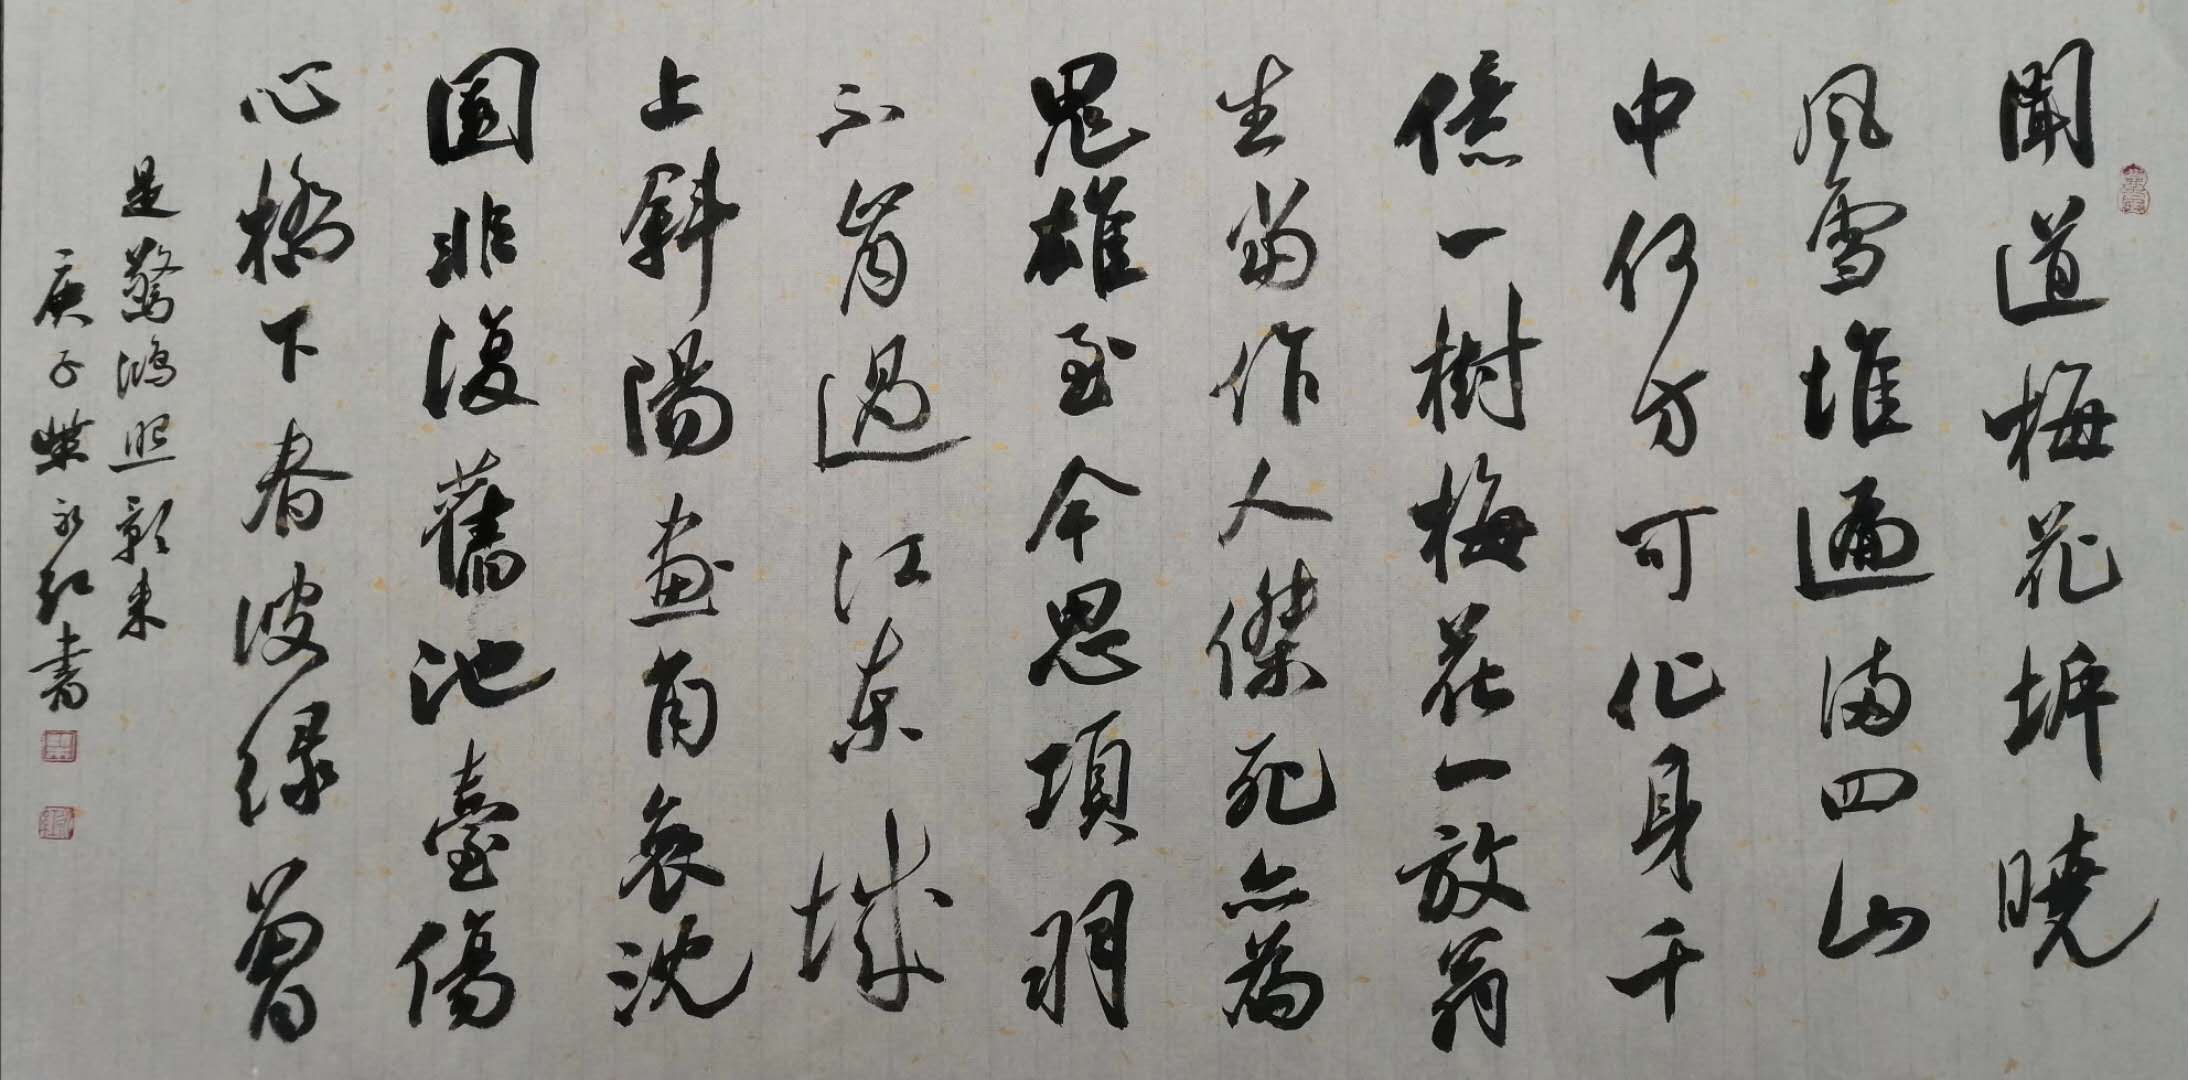 聞道梅花坼曉
風雪堆遍滿四山
中何方可化身千
億一樹梅花一放翁
生當作人傑死亦為
鬼雄至今思項羽
不肯過江東城
上斜陽畫角哀沈
園非復舊池臺傷
心橋下春波綠曾
是驚鴻照影來
庚子柴永紅書